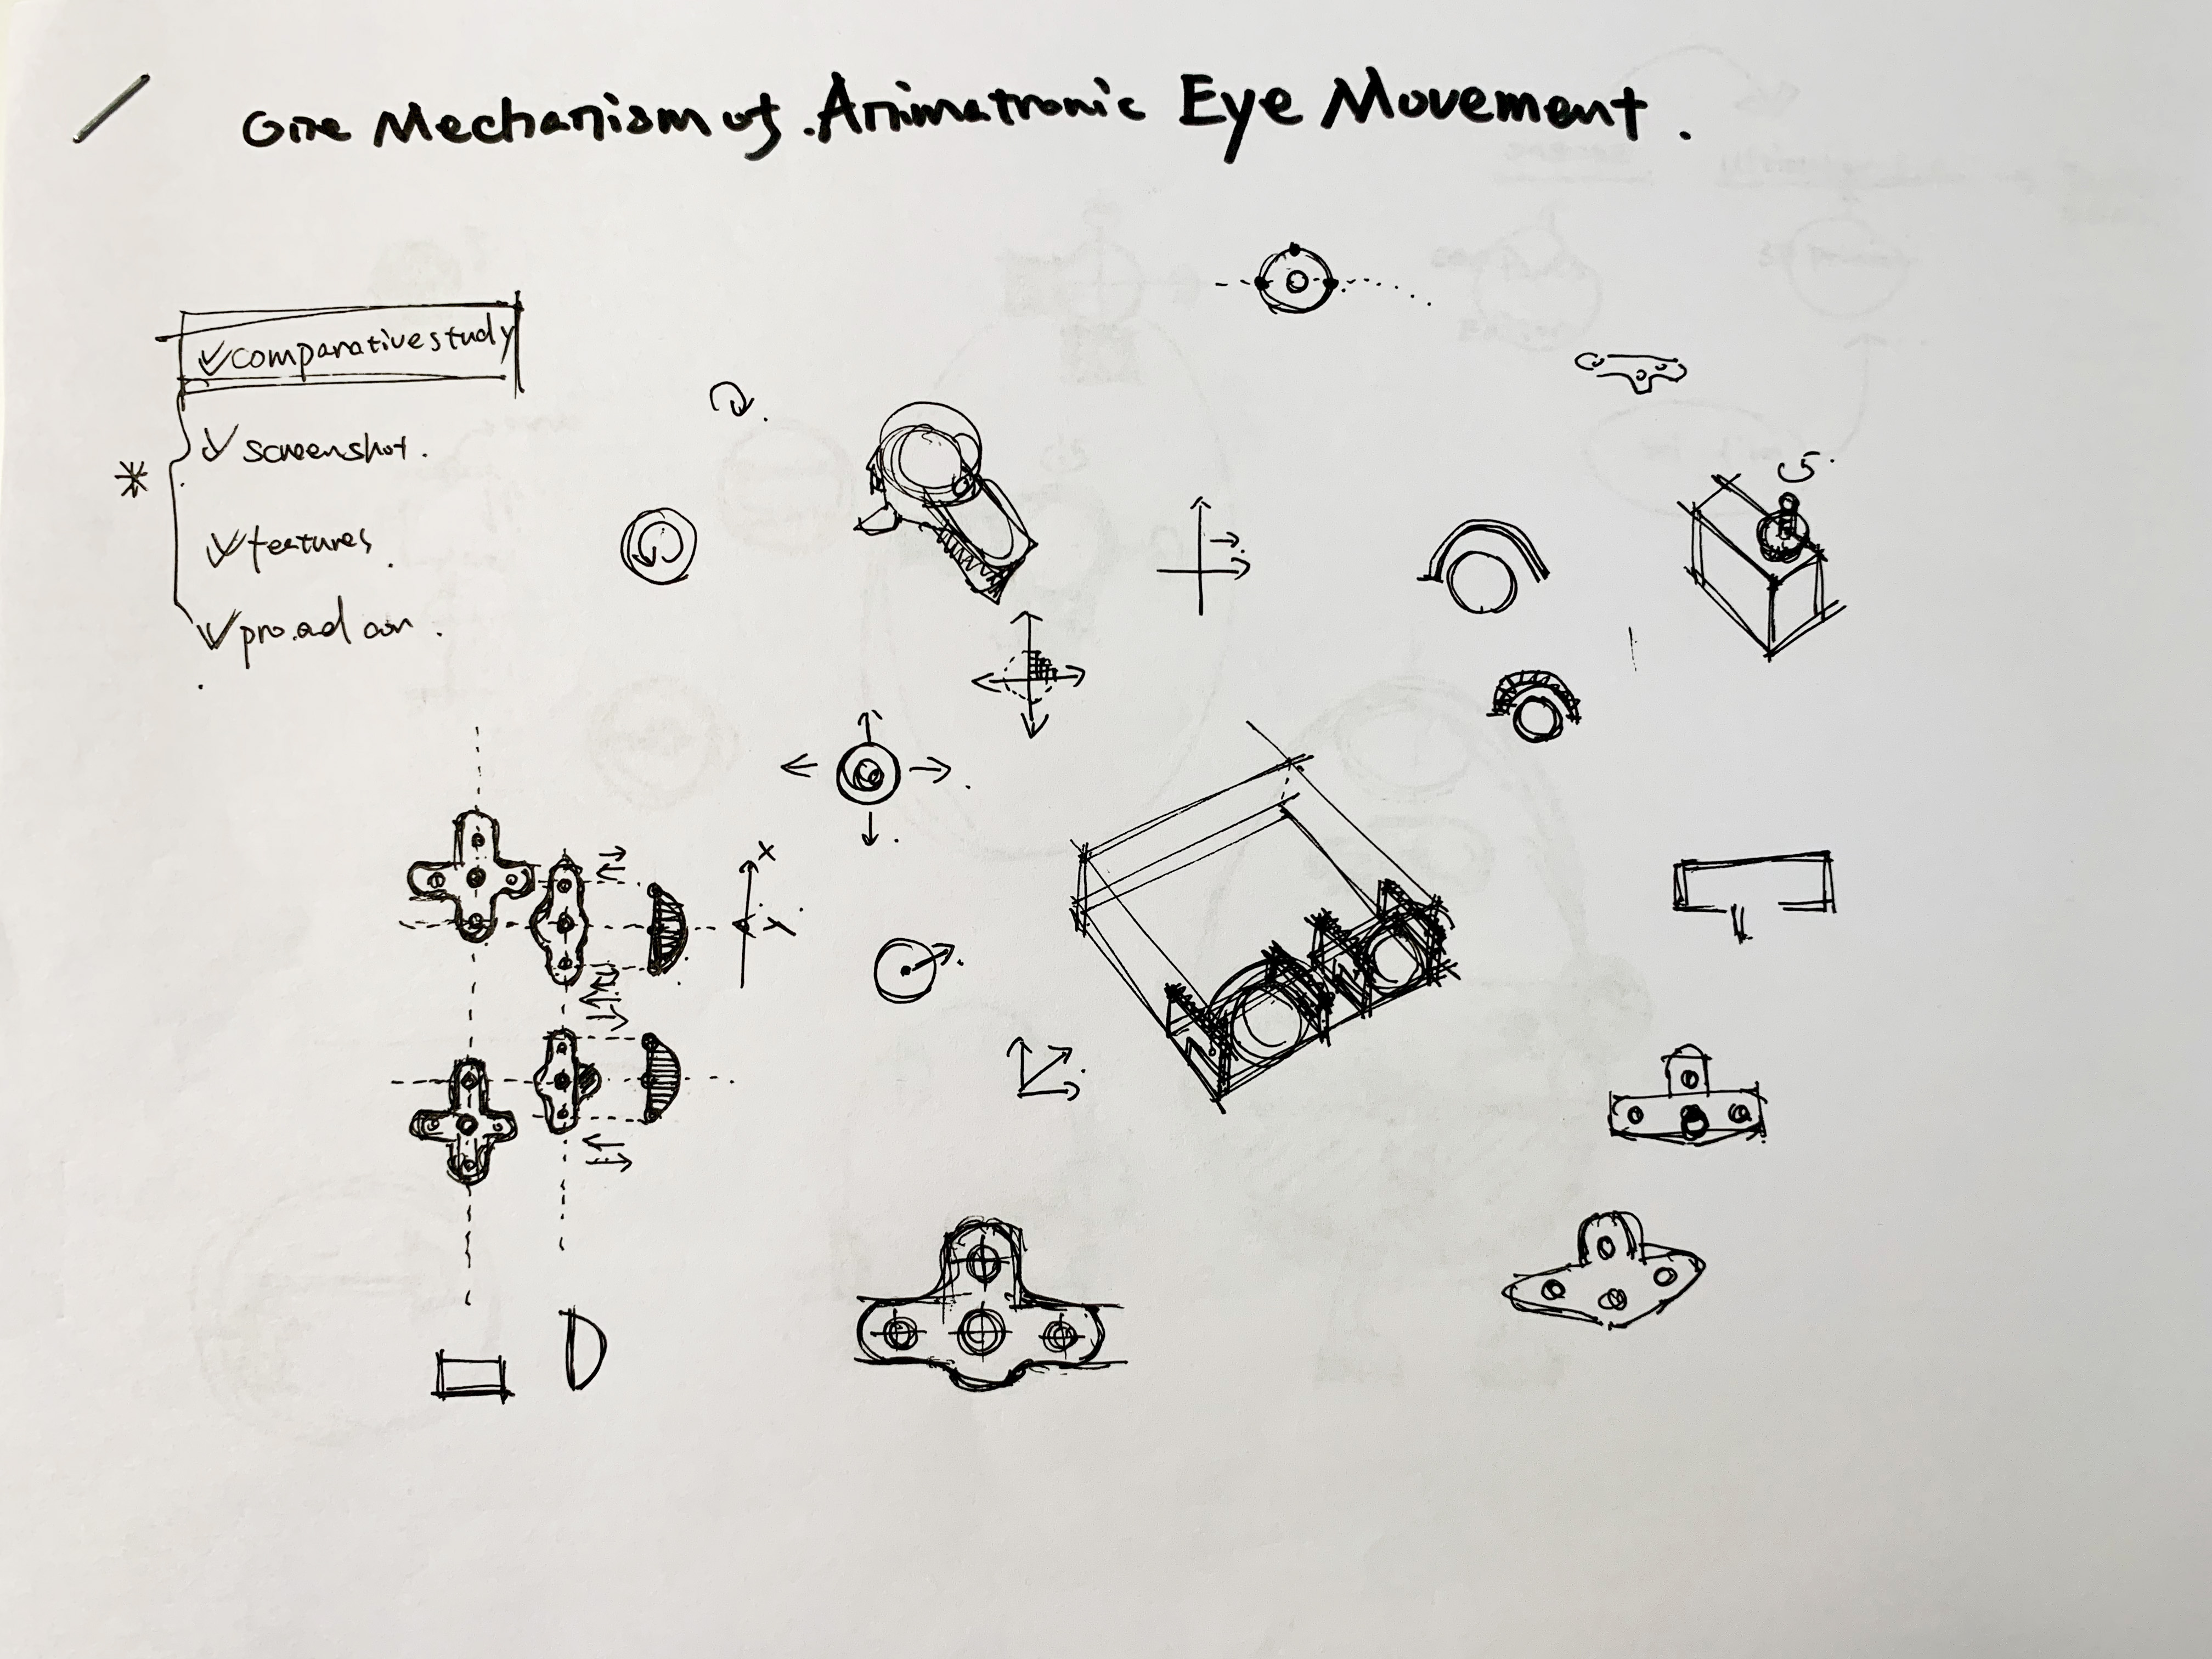 One Mechanism of Animatronic Eye Movement.
comparative study
screenshot.
features.
pro. ad con.
X
Y